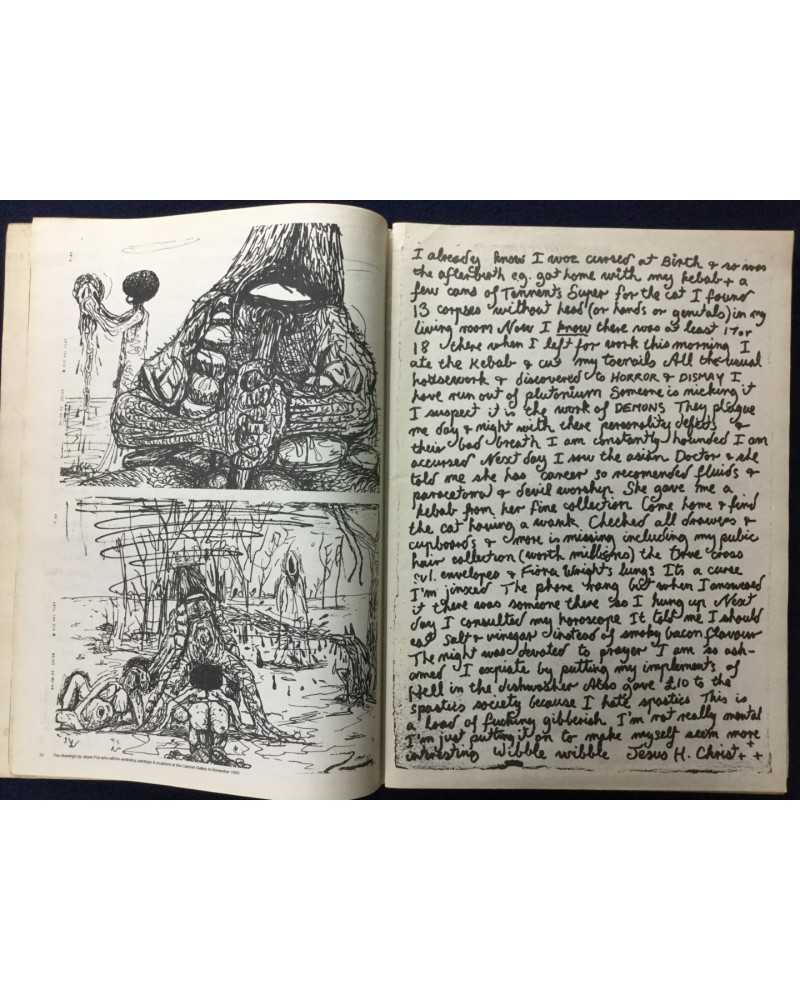 Two drawings by
I already know I woz cursed at Birth & so was
the afterbirth eg. got home with my kebab + a
few cans of Tennent's Super for the cat I found
13 corpses without head (or hands or genitals) in my
living room Now I know there was at least 17 or
18 there when I left for work this morning I
ate the Kebab & cut my toenails All the usual
housework & discovered to HORROR & DISMAY I
have run out of plutonium Someone is nicking it
I suspect it is the work of DEMONS They plague
me day & night with there personality defects &
their bad breath I am constantly hounded I am
accursed Next day I saw the asian Doctor & she
told me she has cancer so recomended fluids &
paracetomol & devil worship She gave me a
kebab from her fine collection Come home & find
the cat having a wank. Checked all drawers &
cupboards & more is missing including my pubic
hair collection (worth millions) the true cross
envelopes & Fiona Wright's lungs Its a curse
I'm jinxed The phone rang but when I answered
it there was someone there so I hung up Next
day I consulted my horoscope It told me I should
eat Salt & vinegar instead of smoky bacon flavour
The night was devoted to prayer I am so ash-
amed I expiate by putting my implements of
Hell in the dishwasher Also gave £10 to the
spastics society because I hate spastics This is
a load of fucking gibberish I'm not really mental
I'm just putting it on to make myself seem more
interesting Wibble wibble Jesus H. Christ + + +